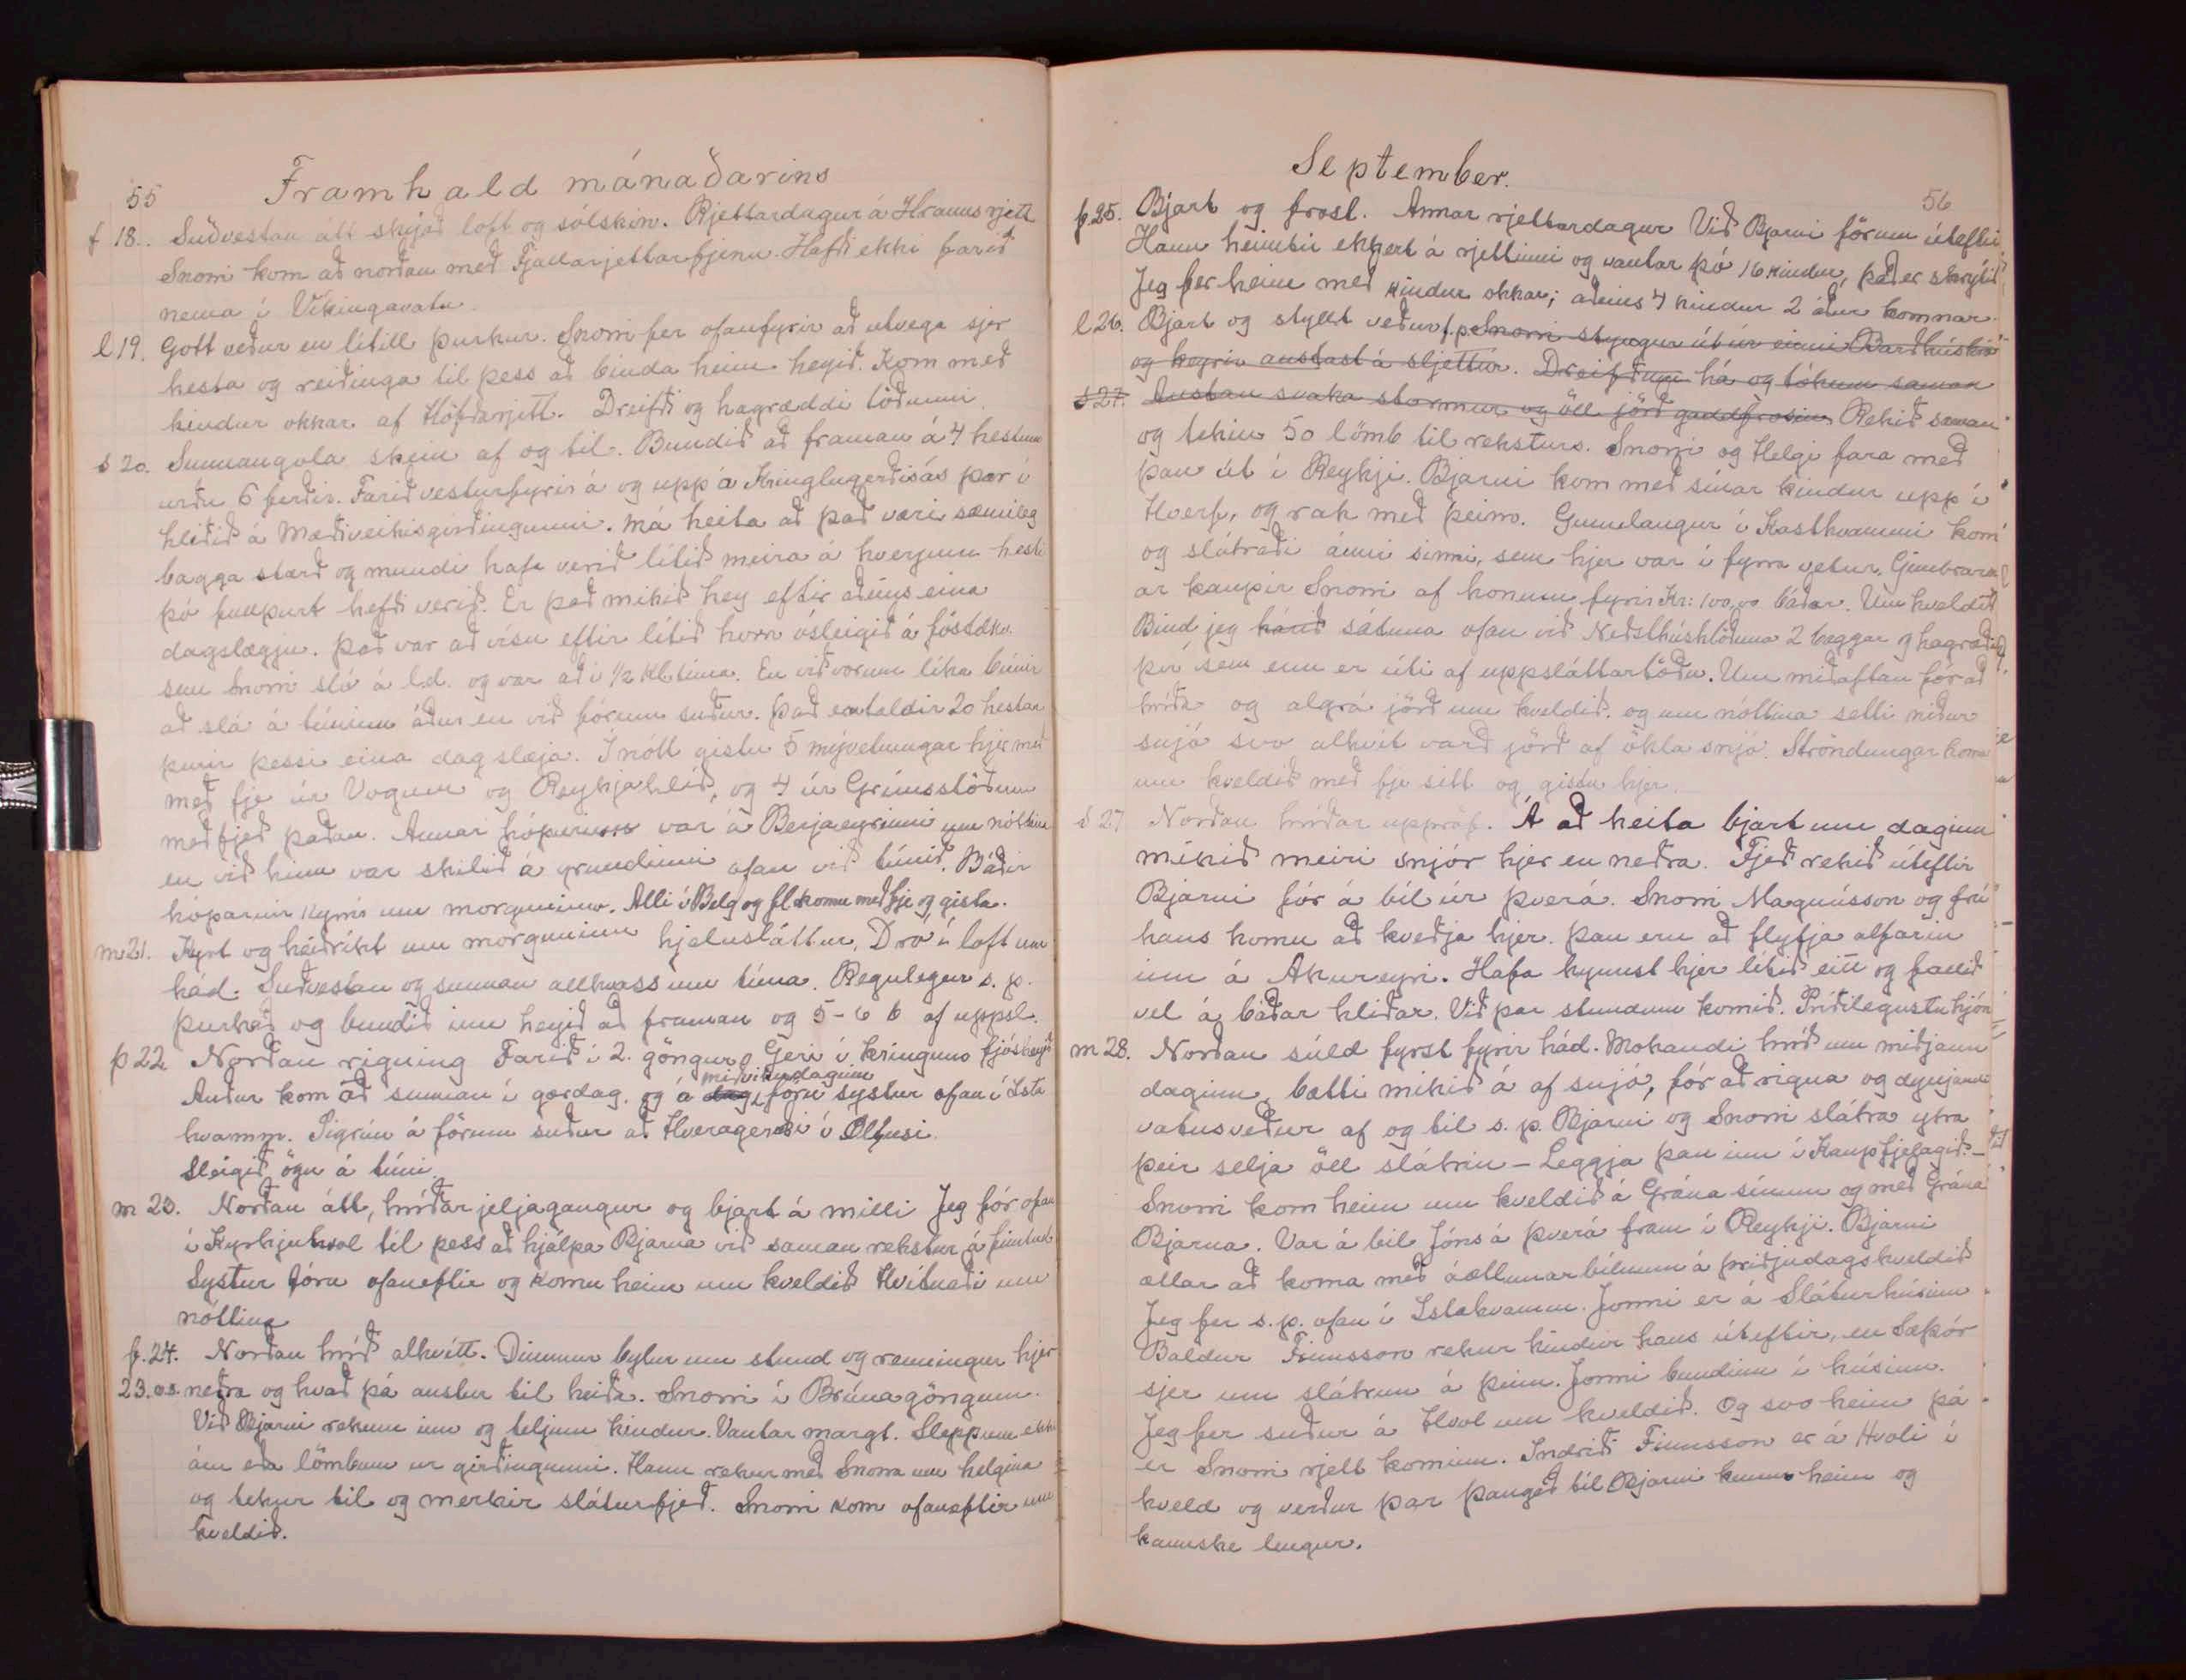 55 Framhald mánaðarins
f 18. Suðvestan átt skýjað loft og sólskin. Rjettardagur á Hraunsrjett
Snorri kom að norðan með Fjallarjettarfjenu. Hafði ekki farið
nema í Víkingavatn.
l 19. Gott veður en lítill þurkur. Snorri fer ofanfyrir að utvega sjer
hesta og reiðinga til þess að binda heim heyið. Kom með
kindur okkar af Höfðarjett. Dreifði og hagræddi töðunni.
s 20. Sunnangola skein af og til. Bundið að framan á 4 hestum
urðu 6 ferðir. Farið vesturfyrir á og upp á Kringlugerðisás þar í
hliðið á Mæðiveikisgirðingunni. Má heita að það væri sæmileg
bagga stærð og mundi hafa verið lítið meira á hverjum hesti
þó fullþurt hefði verið. Er það mikið hey eftir aðeins eina
dagslægju. Það var að vísu eftir lítið horn ósleigið á föstdkv.
sem Snorri sló á ld. og var að í 1/2 kl. tíma. En við vorum líka búnir
að slá á túninu áður en við fórum suður. Það er taldir 20 hestar
þurir þessi eina dagslæja. Í nótt gistu 5 mývetningar hjer með
með fje úr Vogum og Reykjahlíð, og 4 úr Grímsstöðum
með fjeð þaðan. Annar hópurinn var á Berjaeyrinni um nóttina
en við hinn var skilið á grundinni ofan við túnið. Báðir
hóparnir kyrrir um morguninn. Alli í Belg og fl komu með fje og gista.
m 21. Kyrt og heiðríkt um morguninn hjelusláttur. Dró í loft um
hád. Suðvestan og sunnan allhvass um tíma. Regulegur s. p.
þurkað og bundið inn heyið að framan og 5-6 b af uppsl.
þ 22 Norðan rigning Farið í 2. göngur Geri í kringum fjósheyið
miðvikudaginn
Auður kom að sunnan í gærdag. og á dag, fóru systur ofan í Ysta
hvamm. Sigrún á förum suður að Hveragerði í Ölfusi.
Sleigið ögn á túni.
m 23. Norðan átt, hríðar jeljagangur og bjart á milli Jeg fór ofan
í Kyrkjuhvol til þess að hjálpa Bjarna við saman rekstur á fimtud
Systur fóru ofaneftir og komu heim um kveldið Hvítnaði um
nóttina
f. 24. Norðan hríð alhvítt. Dimmur bylur um stund og renningur hjer
23. o.s. neðra og hvað þá austur til heiða. Snorri í Brúnagöngum.
Við Bjarni rekum inn og teljum kindur. Vantar margt. Sleppum ekki
ám eða lömbum ur girðingunni. Hann rekur með Snorra um helgina
og tekur til og merkir sláturfjeð. Snorri kom ofaneftir um
kveldið.
September.
56
f. 25. Bjart og frost. Annar rjettardagur Við Bjarni förum úteftir
Hann heimtir ekkert á rjettinni og vantar þó 16 kindur, það er skrýtið
Jeg fer heim með kindur okkar; aðeins 4 kindur 2 áður komnar.
l 26. Bjart og styllt veður f.p. Snorri stungur út úr einni Barðhúskró
og keyrir austast á sljettur. Dreifðum há og tókum saman
s 27. Austan svaka stormur og öll jörð gaddfrosin. Rekið saman
og tekin 50 lömb til reksturs. Snorri og Helgi fara með
þau út í Reykji. Bjarni kom með sínar kindur upp í
Hverf, og rak með þeim. Gunnlaugur í Kasthvammi kom
og slátraði ánni sinni, sem hjer var í fyrra vetur. Gimbrarn
ar kaupir Snorri af honum fyrir Kr: 100,00 báðar. Um kveldið
Bind jeg háið sátuna ofan við Neðsthúshlöðuna 2 baggar og hagræði
því sem enn er úti af uppsláttartöðu. Um miðaftan fór að
hríða og algrá jörð um kveldið. og um nóttina setti niður
snjó svo alhvít varð jörð af ökla snjó. Ströndungar koma
um kveldið með fje sitt og gistu hjer.
s 27 Norðan hríðar upprof. Á að heita bjart um daginn
mikið meiri snjór hjer en neðra. Fjeð rekið úteftir
Bjarni fór á bíl úr Þverá. Snorri Magnússon og frú
hans komu að kveðja hjer. Þau eru að flytja alfarin
inn á Akureyri. Hafa kynnst hjer lítið eitt og fallið
vel á báðar hliðar. Við þar stundum komið. Príðilegustu hjón
m 28. Norðan súld fyrst fyrir hád. Mokandi hríð um miðjann
daginn, bætti mikið á af snjó, fór að rigna og dynjandi
vatnsveður af og til s. p. Bjarni og Snorri slátra ytra
þeir selja öll slátrin - Leggja þau inn í Kaupfjelagið. -
Snorri kom heim um kveldið á Grána sínum og með Grána
Bjarna. Var á bíl Jóns á Þverá fram í Reykji. Bjarni
ætlar að koma með áætlunarbílnum á þriðjudagskveldið
Jeg fer s. p. ofan í Ystahvamm. Jonni er á Sláturhúsinu.
Baldur Finnsson rekur kindur hans úteftir, en Sæþór
sjer um slátrun á þeim. Jonni bundinn í húsinu.
Jeg fer suður á Hvol um kveldið. Og svo heim þá
er Snorri rjett kominn. Indriði Finnsson er á Hvoli í
kveld og verður þar þangað til Bjarni kemur heim og
kannske lengur.